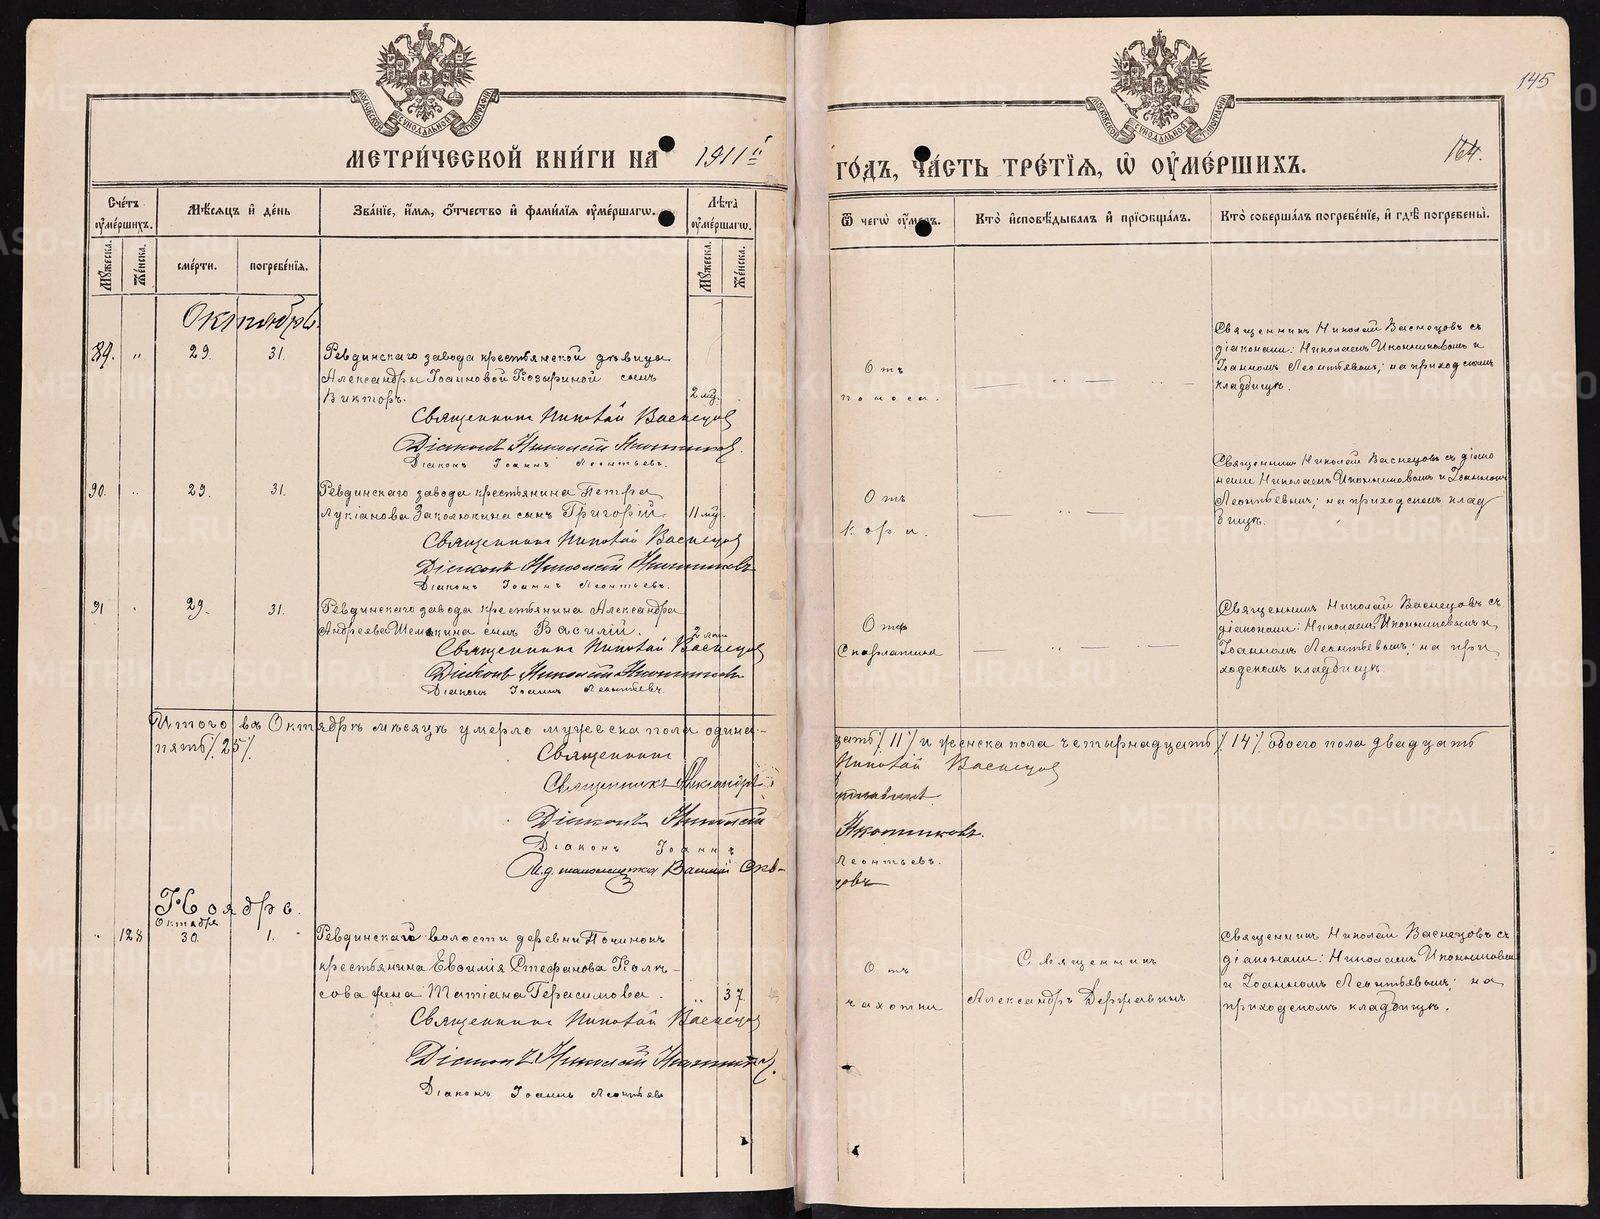 145
МЕТРИ́ЧЕСКОЙ КНИ́ГИ НА 1911й
ГО́ДЪ, ЧА́СТЬ ТРЕ́ТІѦ, Ѡ ОУ҆МЕ́РШИХЪ.
164.
Сче́тъ оу҆ме́ршихъ.
Мꙋ́жеска.
Же́нска.
Мѣ́сѧцъ и҆ де́нь
сме́рти.
погребе́нїѧ.
Зва́нїе, и҆́мѧ, ѻ҆́тчество и҆ фами́лїѧ оу҆ме́ршагѡ.
Лѣ́та оу҆ме́ршагѡ.
Мꙋ́жеска.
Же́нска.
Ѿ чегѡ̀ оу҆́меръ.
Кто̀ и҆сповѣ́дывалъ и҆ прїѡбща́лъ.
Кто̀ соверша́лъ погребе́нїе, и҆ гдѣ̀ погребены̀.
Октябрь.
89. " 29. 31.
Ревдинскаго завода крестьянской дѣвицы
Александры Іоанновой Козыриной сынъ
Викторъ. 2 мѣ.
Священникъ Николай Васнецовъ
Діаконъ Николай Иконниковъ.
Діаконъ Іоаннъ Леонтьевъ.
Отъ
поноса.
Священникъ Николай Васнецовъ съ
діаконами: Николаемъ Иконниковымъ и
Іоанномъ Леонтьевымъ; на приходскомъ
кладбищѣ.
90. " 29. 31.
Ревдинскаго завода крестьянина Петра
Лукіанова Заколюкина сынъ Григорій. 11 мѣ.
Священникъ Николай Васнецовъ
Діаконъ Николай Иконниковъ
Діаконъ Іоаннъ Леонтьевъ.
Отъ
кори.
Священникъ Николай Васнецовъ съ діако
нами Николаемъ Иконниковымъ и Іоанномъ
Леонтьевымъ; на приходскомъ клад
бищѣ.
91 29. 31.
Ревдинскаго завода крестьянина Александра
Андреева Шемякина сынъ Василій. 2 лѣтъ
Священникъ Николай Васнецовъ
Діаконъ Николай Иконниковъ
Діаконъ Іоаннъ Леонтьевъ.
Отъ
Скарлатины
Священникъ Николай Васнецовъ съ
діаконами: Николаемъ Иконниковымъ и
Іоанномъ Леонтьевымъ; на при
ходскомъ кладбищѣ.
Итого въ Октябрѣ мѣсяцѣ умерло мужеска пола одина-
дцать /11/ и женска пола четырнадцать /14/ обоего пола двадцать
пять /25/.
Священникъ Николай Васнецовъ
Священникъ Александръ
Діаконъ Николай Иконниковъ.
Діаконъ Іоаннъ Леонтьевъ.
И.д. псаломщика Василій
Ноябрь.
Октября
128 30. 1.
Ревдинской волости деревни Починокъ
крестьянина Евѳимія Стефанова
жена Татіана Герасимова. " 37
Священникъ Николай Васнецовъ
Діаконъ Николай Иконниковъ.
Діаконъ Іоаннъ Леонтьевъ
Отъ
чахотки
Священникъ
Александръ Державинъ
Священникъ Николай Васнецовъ съ
діаконами: Николаемъ Иконниковымъ
и Іоанномъ Леонтьевымъ; на
приходскомъ кладбищѣ.
METRIKI.GASO-URAL.RU